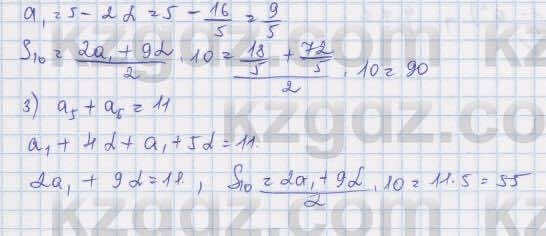 a₁ = 5 - 2d = 5 - 16/5 = 9/5
S₁₀ = (2a₁ + 9d)/2 · 10 = (18/5 + 72/5)/2 · 10 = 90
3) a₅ + a₆ = 11
a₁ + 4d + a₁ + 5d = 11
2a₁ + 9d = 11, S₁₀ = (2a₁ + 9d)/2 · 10 = 11·5 = 55
kzgdz.com